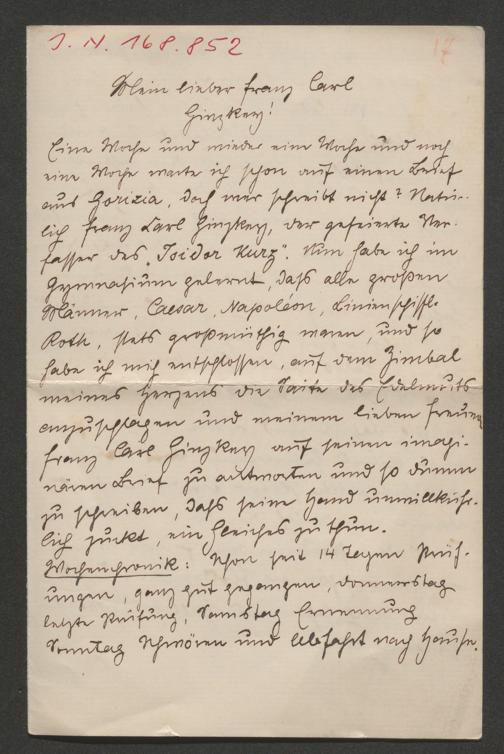 J. N. 168.852
17
Mein lieber Franz Carl
Ginzkey!
Eine Woche und wieder eine Woche und noch
eine Woche warte ich schon auf einen Brief
aus Gorizia, doch wer schreibt nicht? Natür-
lich Franz Carl Ginzkey, der gefeierte Ver-
fasser des „Isidor Kurz". Nun habe ich im
Gymnasium gelernt, daß alle großen
Männer, Caesar, Napoléon, Linienschiffl.
Roth, stets großmüthig waren, und so
habe ich mich entschlossen, auf dem Zimbal
meines Herzens die Saite des Edelmuts
anzuschlagen und meinem lieben Freund
Franz Carl Ginzkey auf seinen imagi-
nären Brief zu antworten und so dumm
zu schreiben, daß seine Hand unwillkühr-
lich zuckt, ein Gleiches zu thun.
Wochenchronik: Schon seit 14 Tagen Prüf-
ungen, ganz gut gegangen, Donnerstag
letzte Prüfung, Samstag Ernennung
Sonntag Schwören und Abfahrt nach Hause.